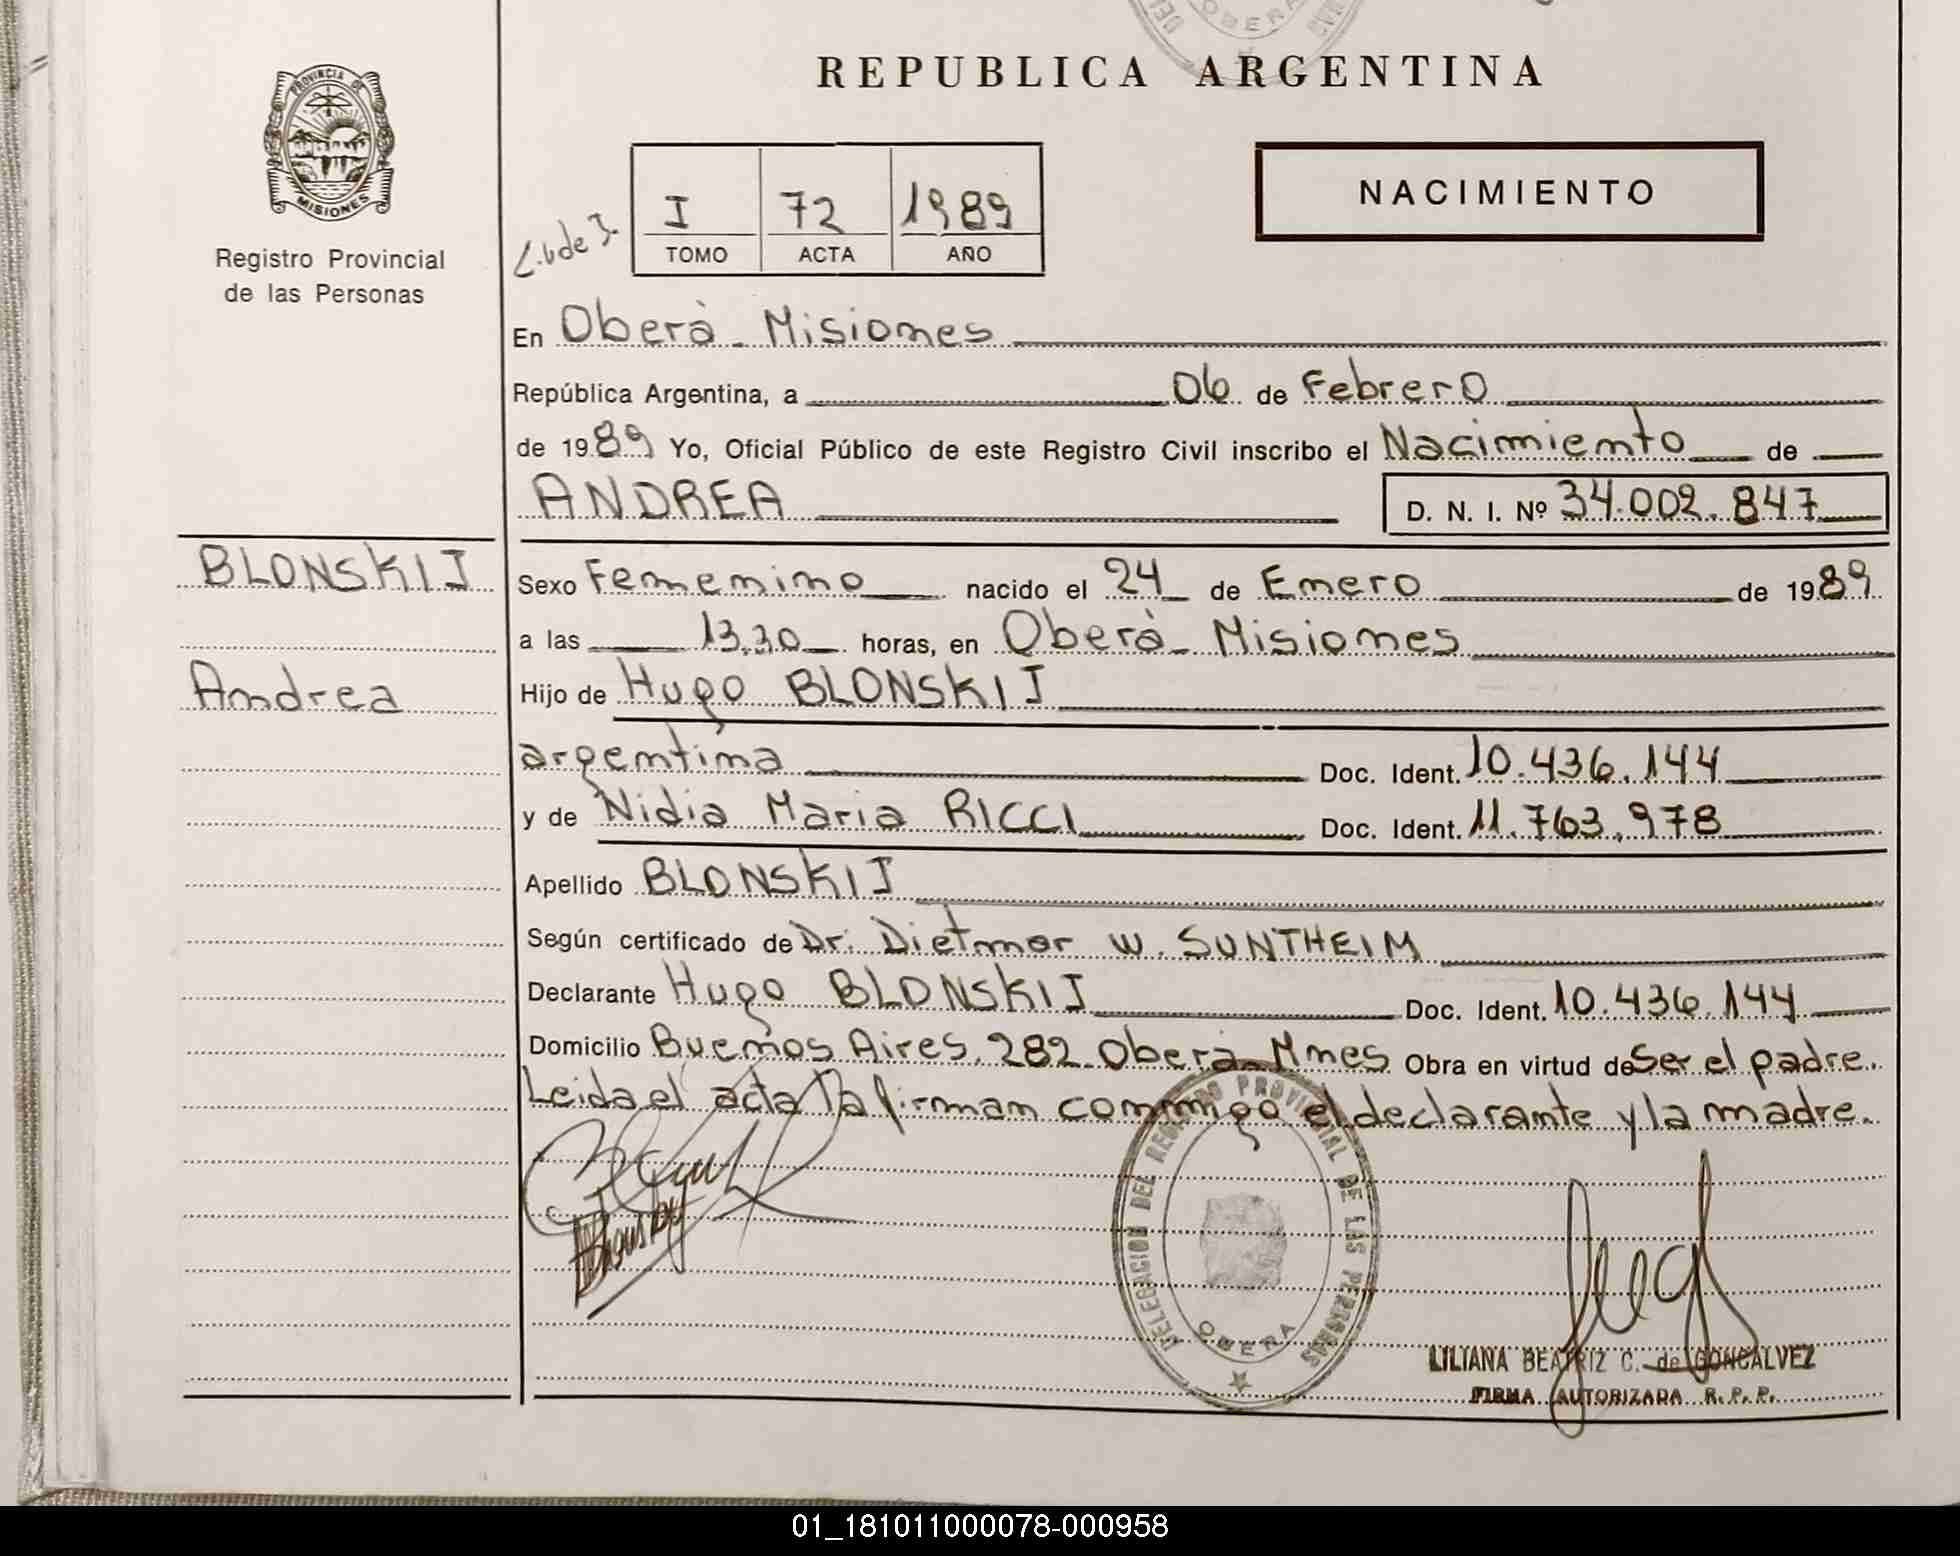 OBERA
REPUBLICA ARGENTINA
PROVINCIA DE
MISIONES
Registro Provincial
de las Personas
NACIMIENTO
I 72 1989
TOMO ACTA AÑO
En Oberà - Misiones
República Argentina, a 06 de Febrero
de 1989 Yo, Oficial Público de este Registro Civil inscribo el Nacimiento de
ANDREA D. N. I. Nº 34.002.847
BLONSKIJ
Andrea
Sexo Femenino nacido el 24 de Enero de 1989
a las 13,30 horas, en Oberà - Misiones
Hijo de Hugo BLONSKIJ
argentina Doc. Ident. 10.436.144
y de Nidia Maria RICCI Doc. Ident. 11.763.978
Apellido BLONSKIJ
Según certificado de Dr. Dietmar W. SUNTHEIM
Declarante Hugo BLONSKIJ Doc. Ident. 10.436.144
Domicilio Buenos Aires 282 Oberà - Mnes Obra en virtud de Ser el padre.
Leida el acta la firman conmigo el declarante y la madre.
DELEGACION DEL REGISTRO PROVINCIAL DE LAS PERSONAS
OBERA
LILIANA BEATRIZ C. de GONCALVEZ
FIRMA AUTORIZADA R. P. P.
01_181011000078-000958